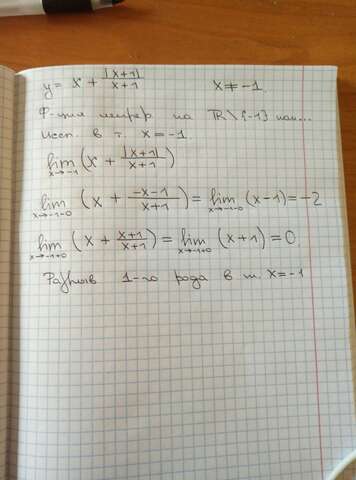 y = x + |x+1|/(x+1)    x ≠ -1.
Ф-ция непрер на ℝ\{-1} как...
Иссл. в т. x = -1.
lim x→-1 (x + |x+1|/(x+1))
lim x→-1-0 (x + (-x-1)/(x+1)) = lim x→-1-0 (x-1) = -2
lim x→-1+0 (x + (x+1)/(x+1)) = lim x→-1+0 (x+1) = 0.
Разрыв 1-го рода в т. x = -1